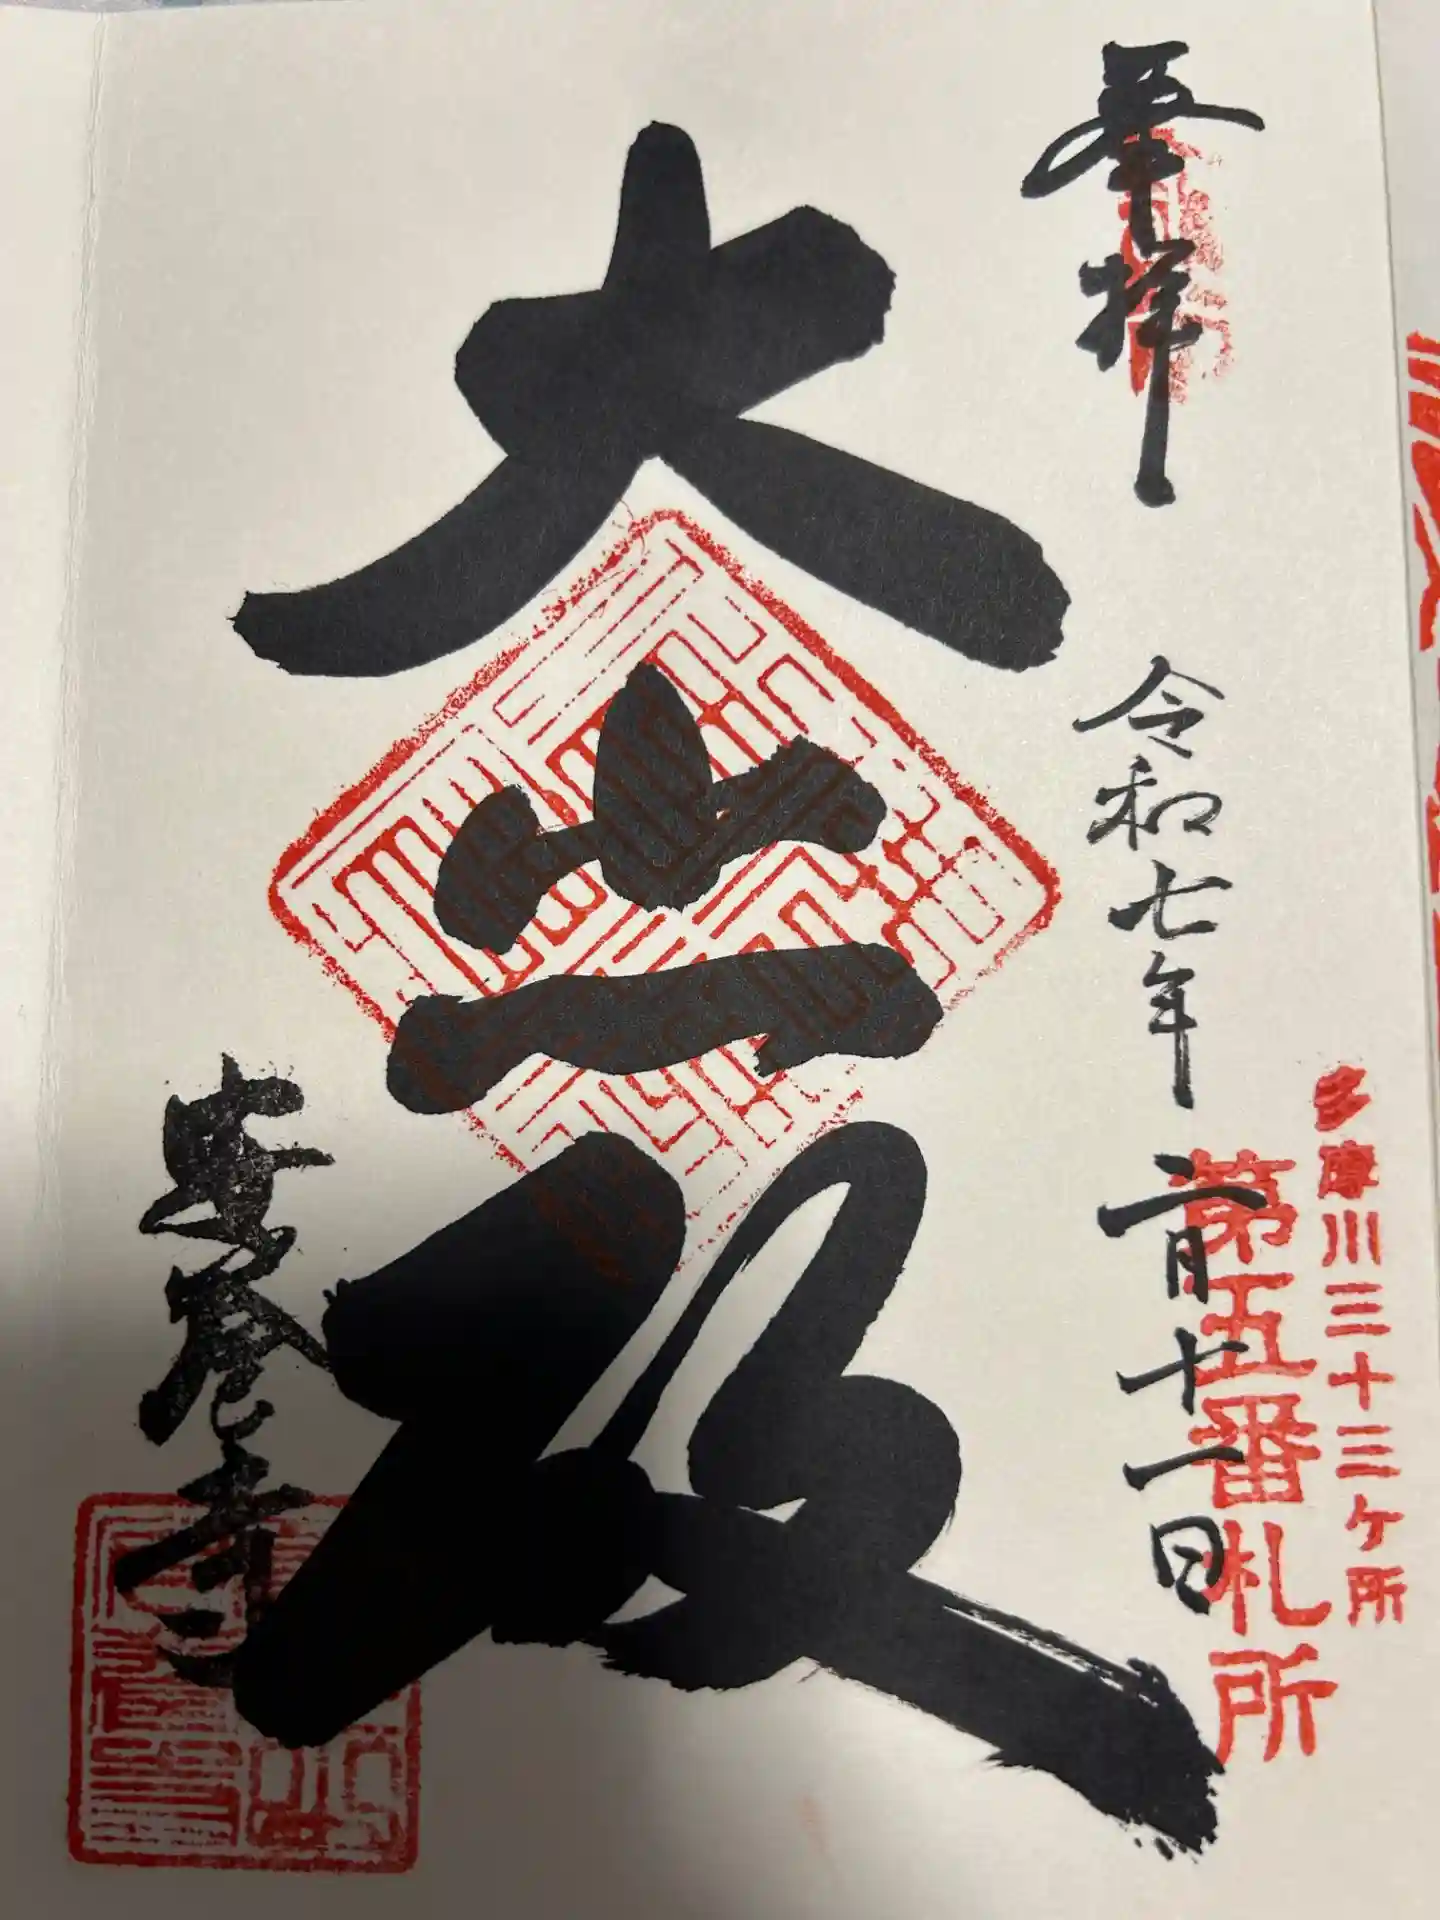 多摩川三十三ヶ所
第五番札所
奉拝
令和七年二月十一日
大悲殿
安養寺